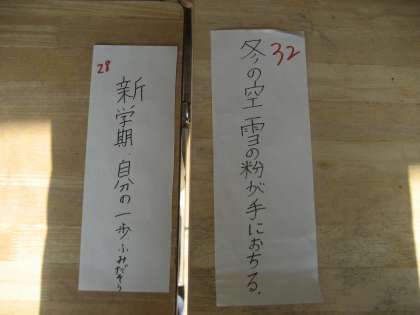 28
新学期、自分の一歩ふみだそう
32
冬の空 雪の粉が手におちる。